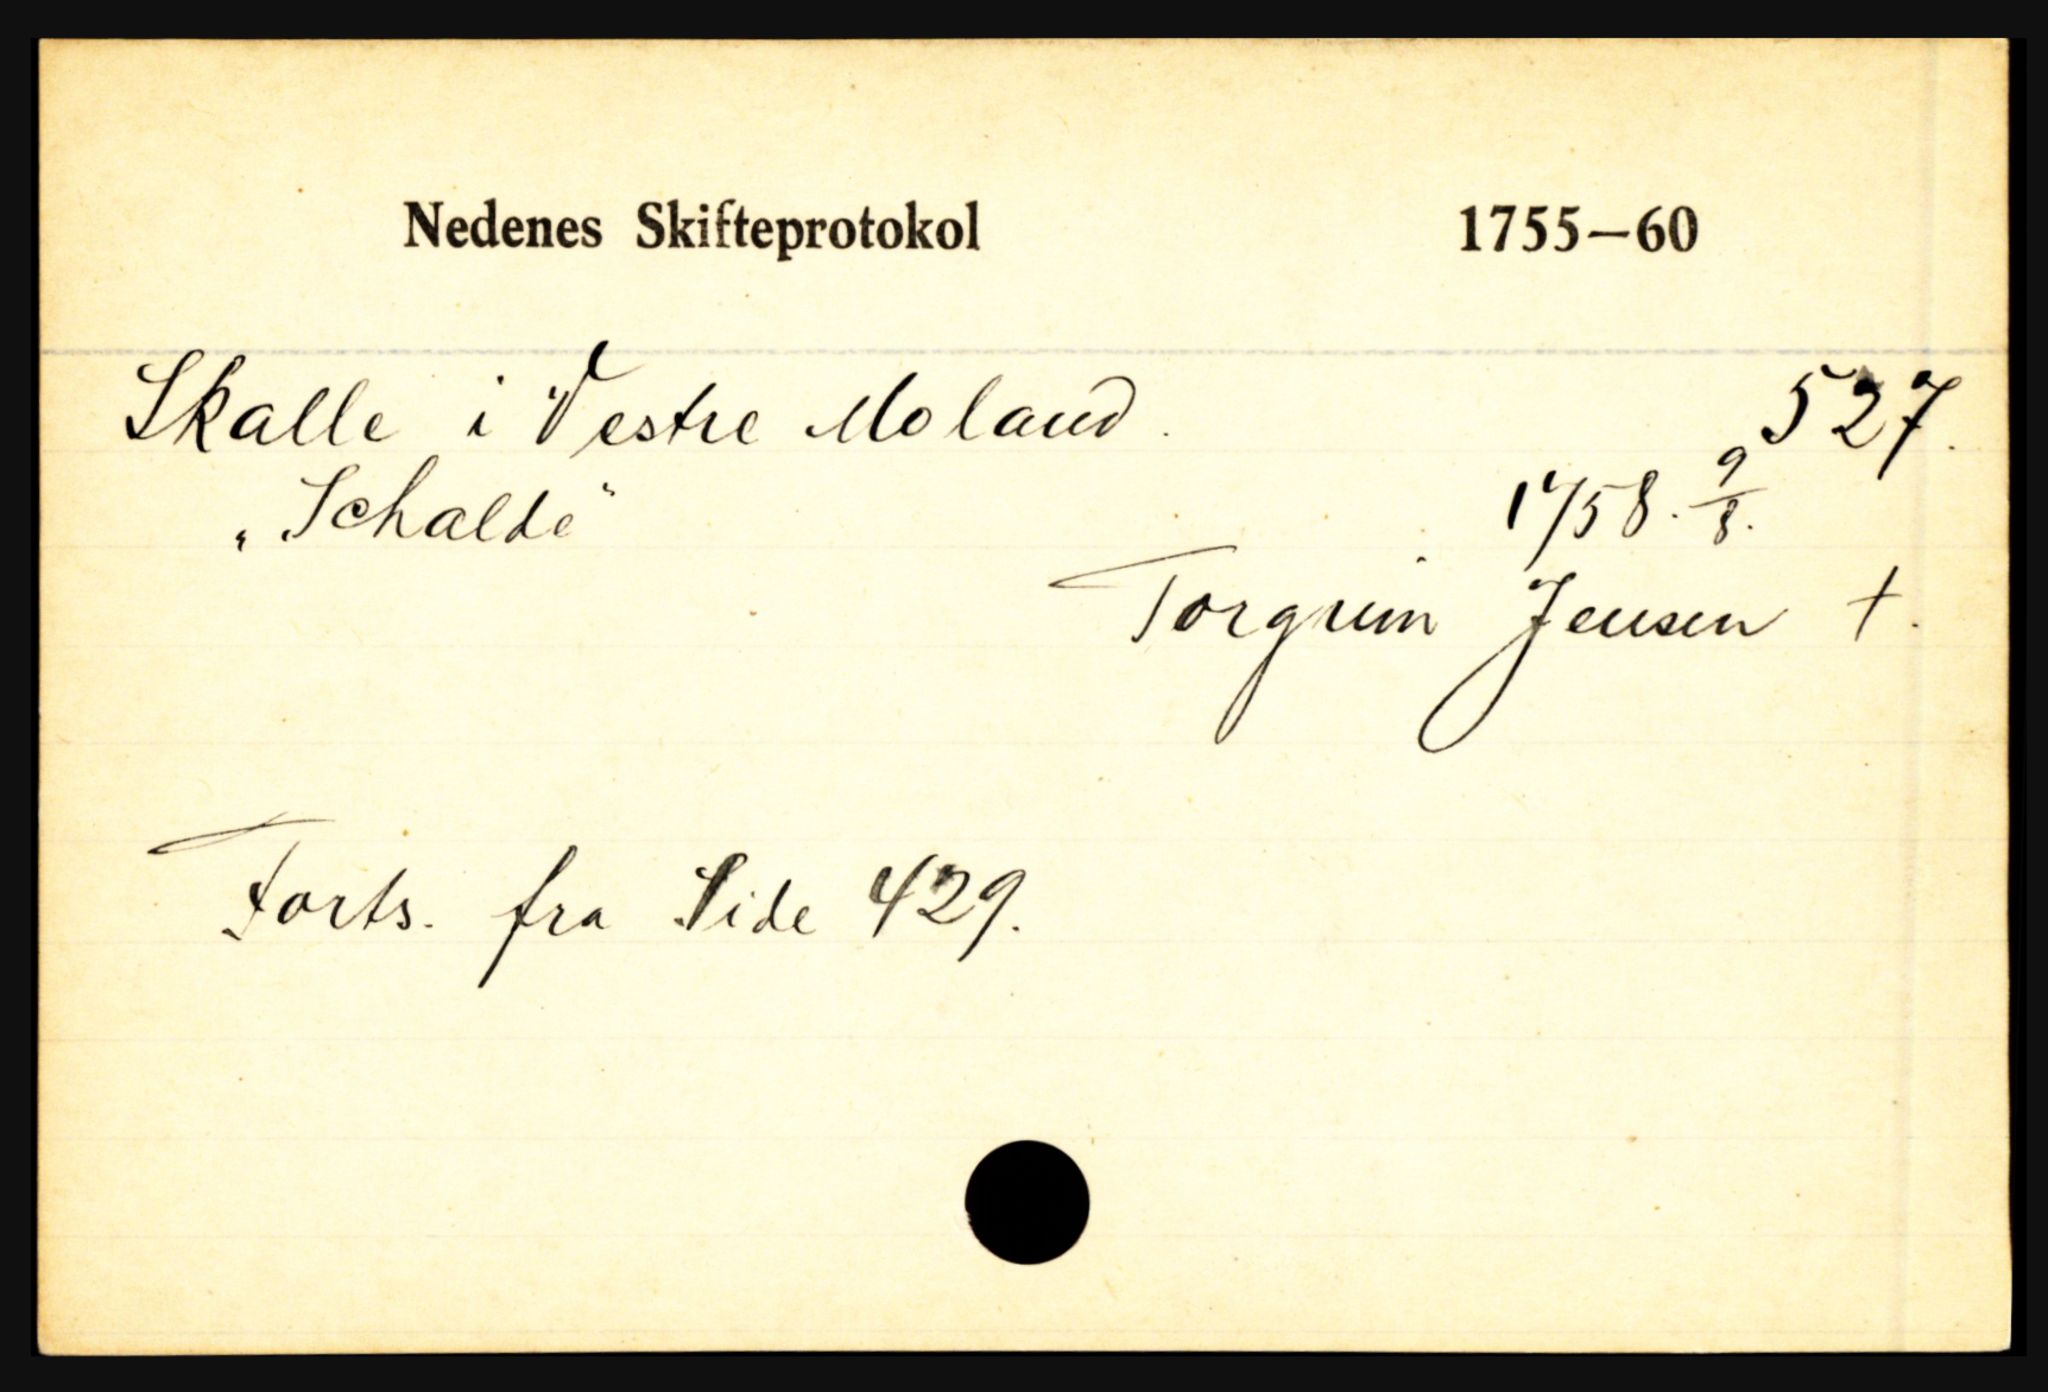 Nedenes Skifteprotokol 1755—60
Skalle i Vestre Moland. 527.
„Schalde" 1758. 9/8.
Torgrim Jensen †.
Forts. fra Side 429.